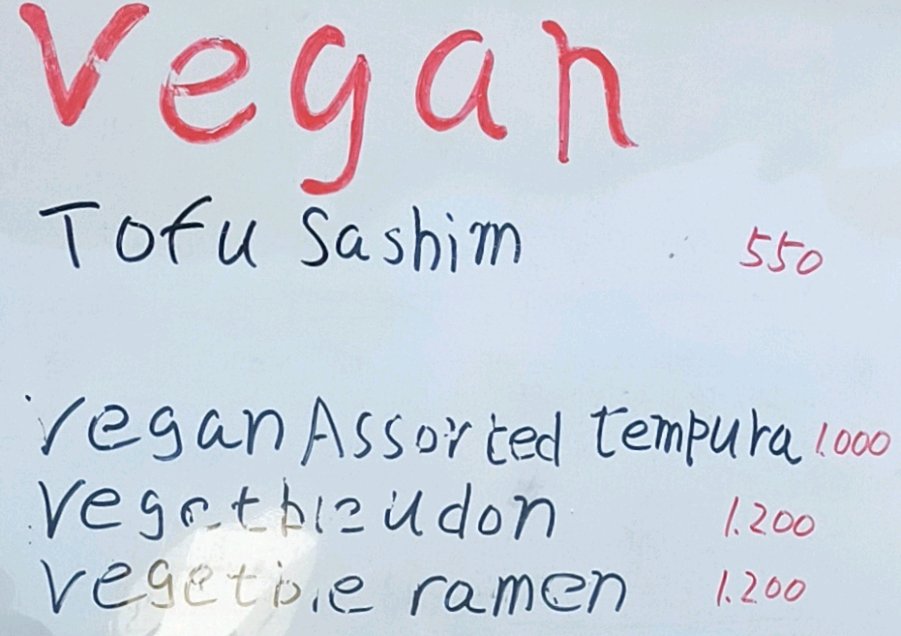 Vegan
Tofu Sashim 550
Vegan Assorted tempura 1.000
Vegetble udon 1.200
Vegetble ramen 1.200